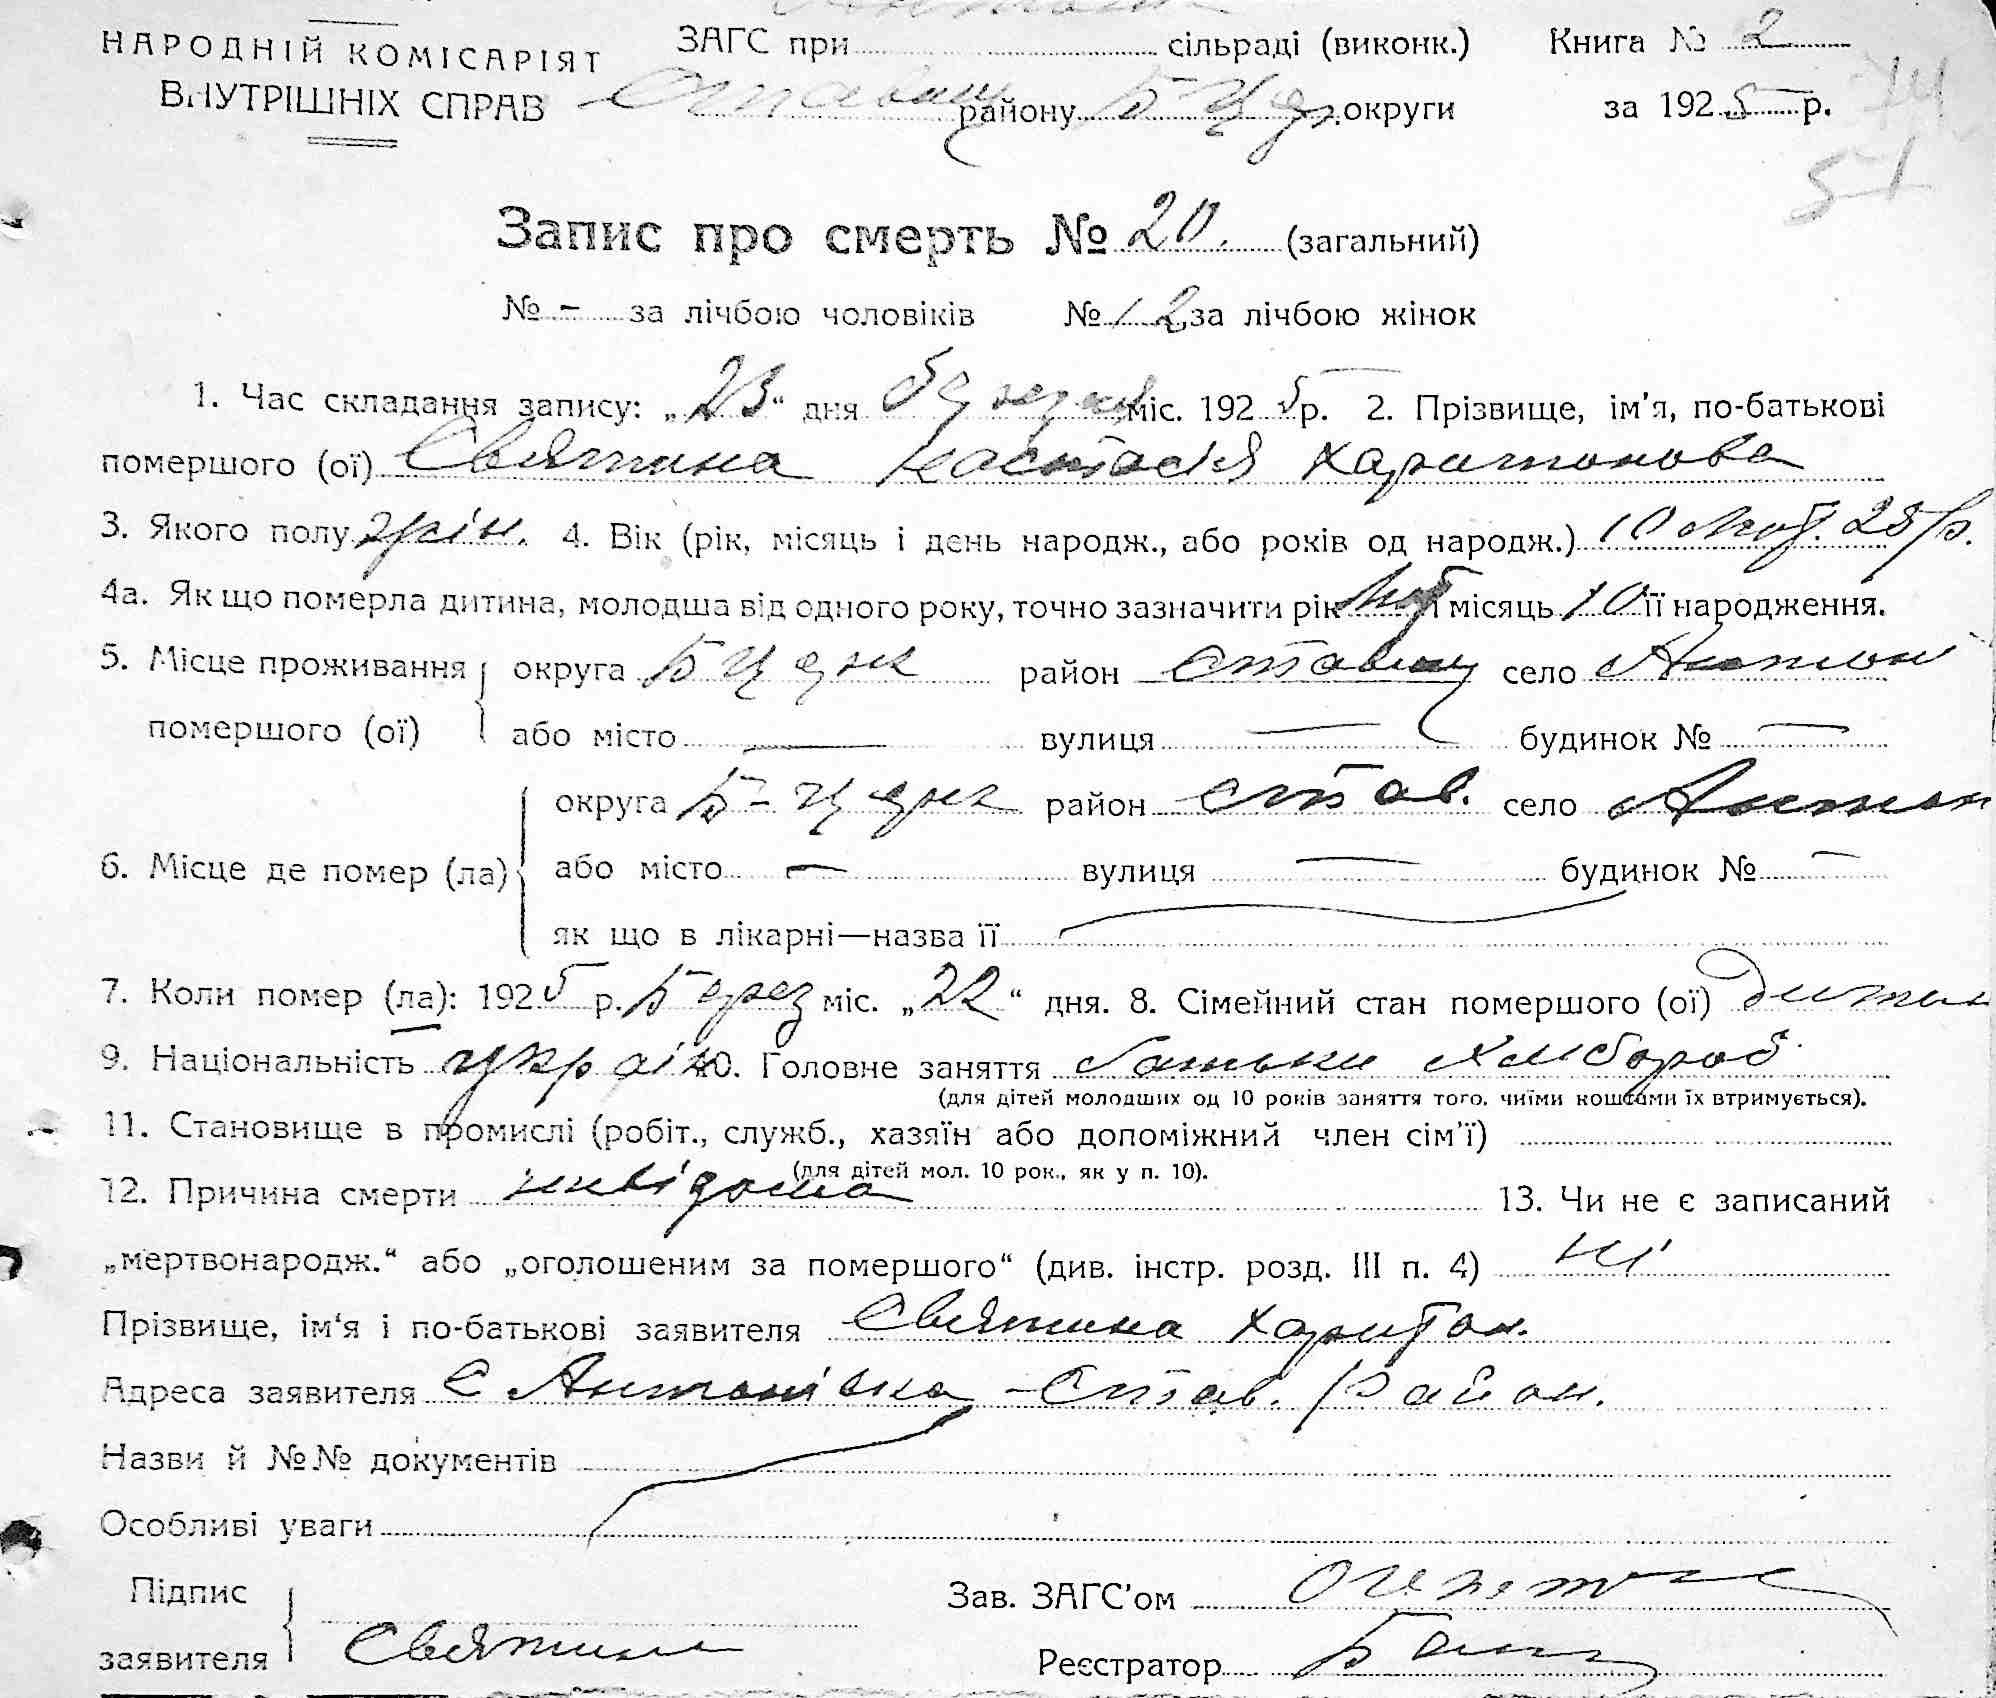 НАРОДНІЙ КОМІСАРІЯТ
ВНУТРІШНІХ СПРАВ
ЗАГС при сільраді (виконк.) Книга № 2
Ставищ району Б-Церк. округи за 1925 р.
74
51
Запис про смерть № 20. (загальний)
№ - за лічбою чоловіків № 12 за лічбою жінок
1. Час складання запису: „23“ дня березня міс. 1925 р. 2. Прізвище, ім'я, по-батькові
помершого (ої) Святина Настасія Харитонова
3. Якого полу жін. 4. Вік (рік, місяць і день народж., або років од народж.) 10 Лют. 25 р.
4а. Як що померла дитина, молодша від одного року, точно зазначити рік Лют і місяць 10 її народження.
5. Місце проживання помершого (ої) округа Б Церк район Ставищ село Антон
або місто — вулиця — будинок № —
6. Місце де помер (ла) округа Б-Церк район Став. село Антон
або місто — вулиця — будинок № —
як що в лікарні—назва її
7. Коли помер (ла): 1925 р. Берез міс. „22“ дня. 8. Сімейний стан помершого (ої) дитин
9. Національність україн 10. Головне заняття батьки хлібороб
(для дітей молодших од 10 років заняття того, чиїми коштами їх втримується).
11. Становище в промислі (робіт., служб., хазяїн або допоміжний член сім'ї)
(для дітей мол. 10 рок., як у п. 10).
12. Причина смерти невідома 13. Чи не є записаний
„мертвонародж.“ або „оголошеним за помершого“ (див. інстр. розд. III п. 4) ні
Прізвище, ім'я і по-батькові заявителя Святина Харитон.
Адреса заявителя с Антонівка - Став. Район.
Назви й №№ документів
Особливі уваги
Підпис заявителя Святина
Зав. ЗАГС'ом
Реєстратор